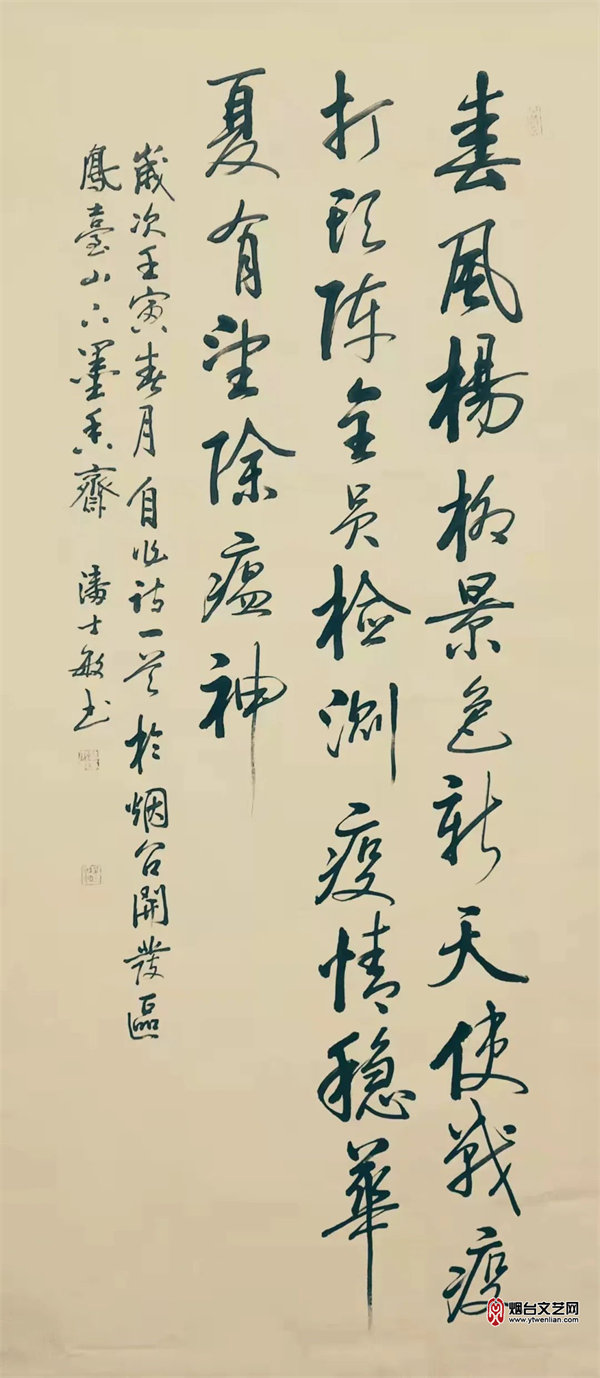 春風楊柳景色新天使戰疫
打頭陣全員檢測疫情穩華
夏有望除瘟神
歲次壬寅春月自作诗一首於烟台開發區
鳳臺山下墨香齋 潘士敏书
烟台文艺网
www.ytwenlian.com